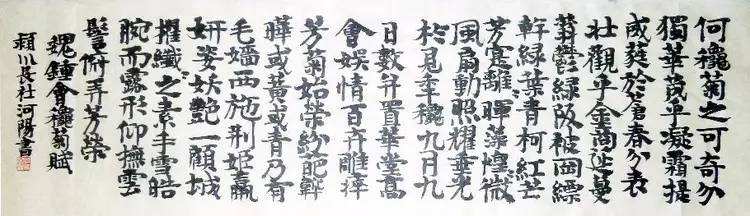 何穠菊之可奇兮
獨華茂乎凝霜挺
葳蕤於蒼春兮表
壯觀乎金商延蔓
蓊鬱緣阪被岡縹
幹綠葉青柯紅芒
芳實離〻暉藻煌〻微
風扇動照耀垂光
於是季穐九月九
日數并置華堂高
會娛情百卉雕瘁
芳菊始榮紛葩曄
〻或黄或青乃有
毛嬙西施荆姬嬴
妍姿妖艷一顧城
擢纖〻之素手雪皓
腕而露形仰撫雲
髻俯弄芳榮
魏鍾會穠菊賦
潁川長社河陽書